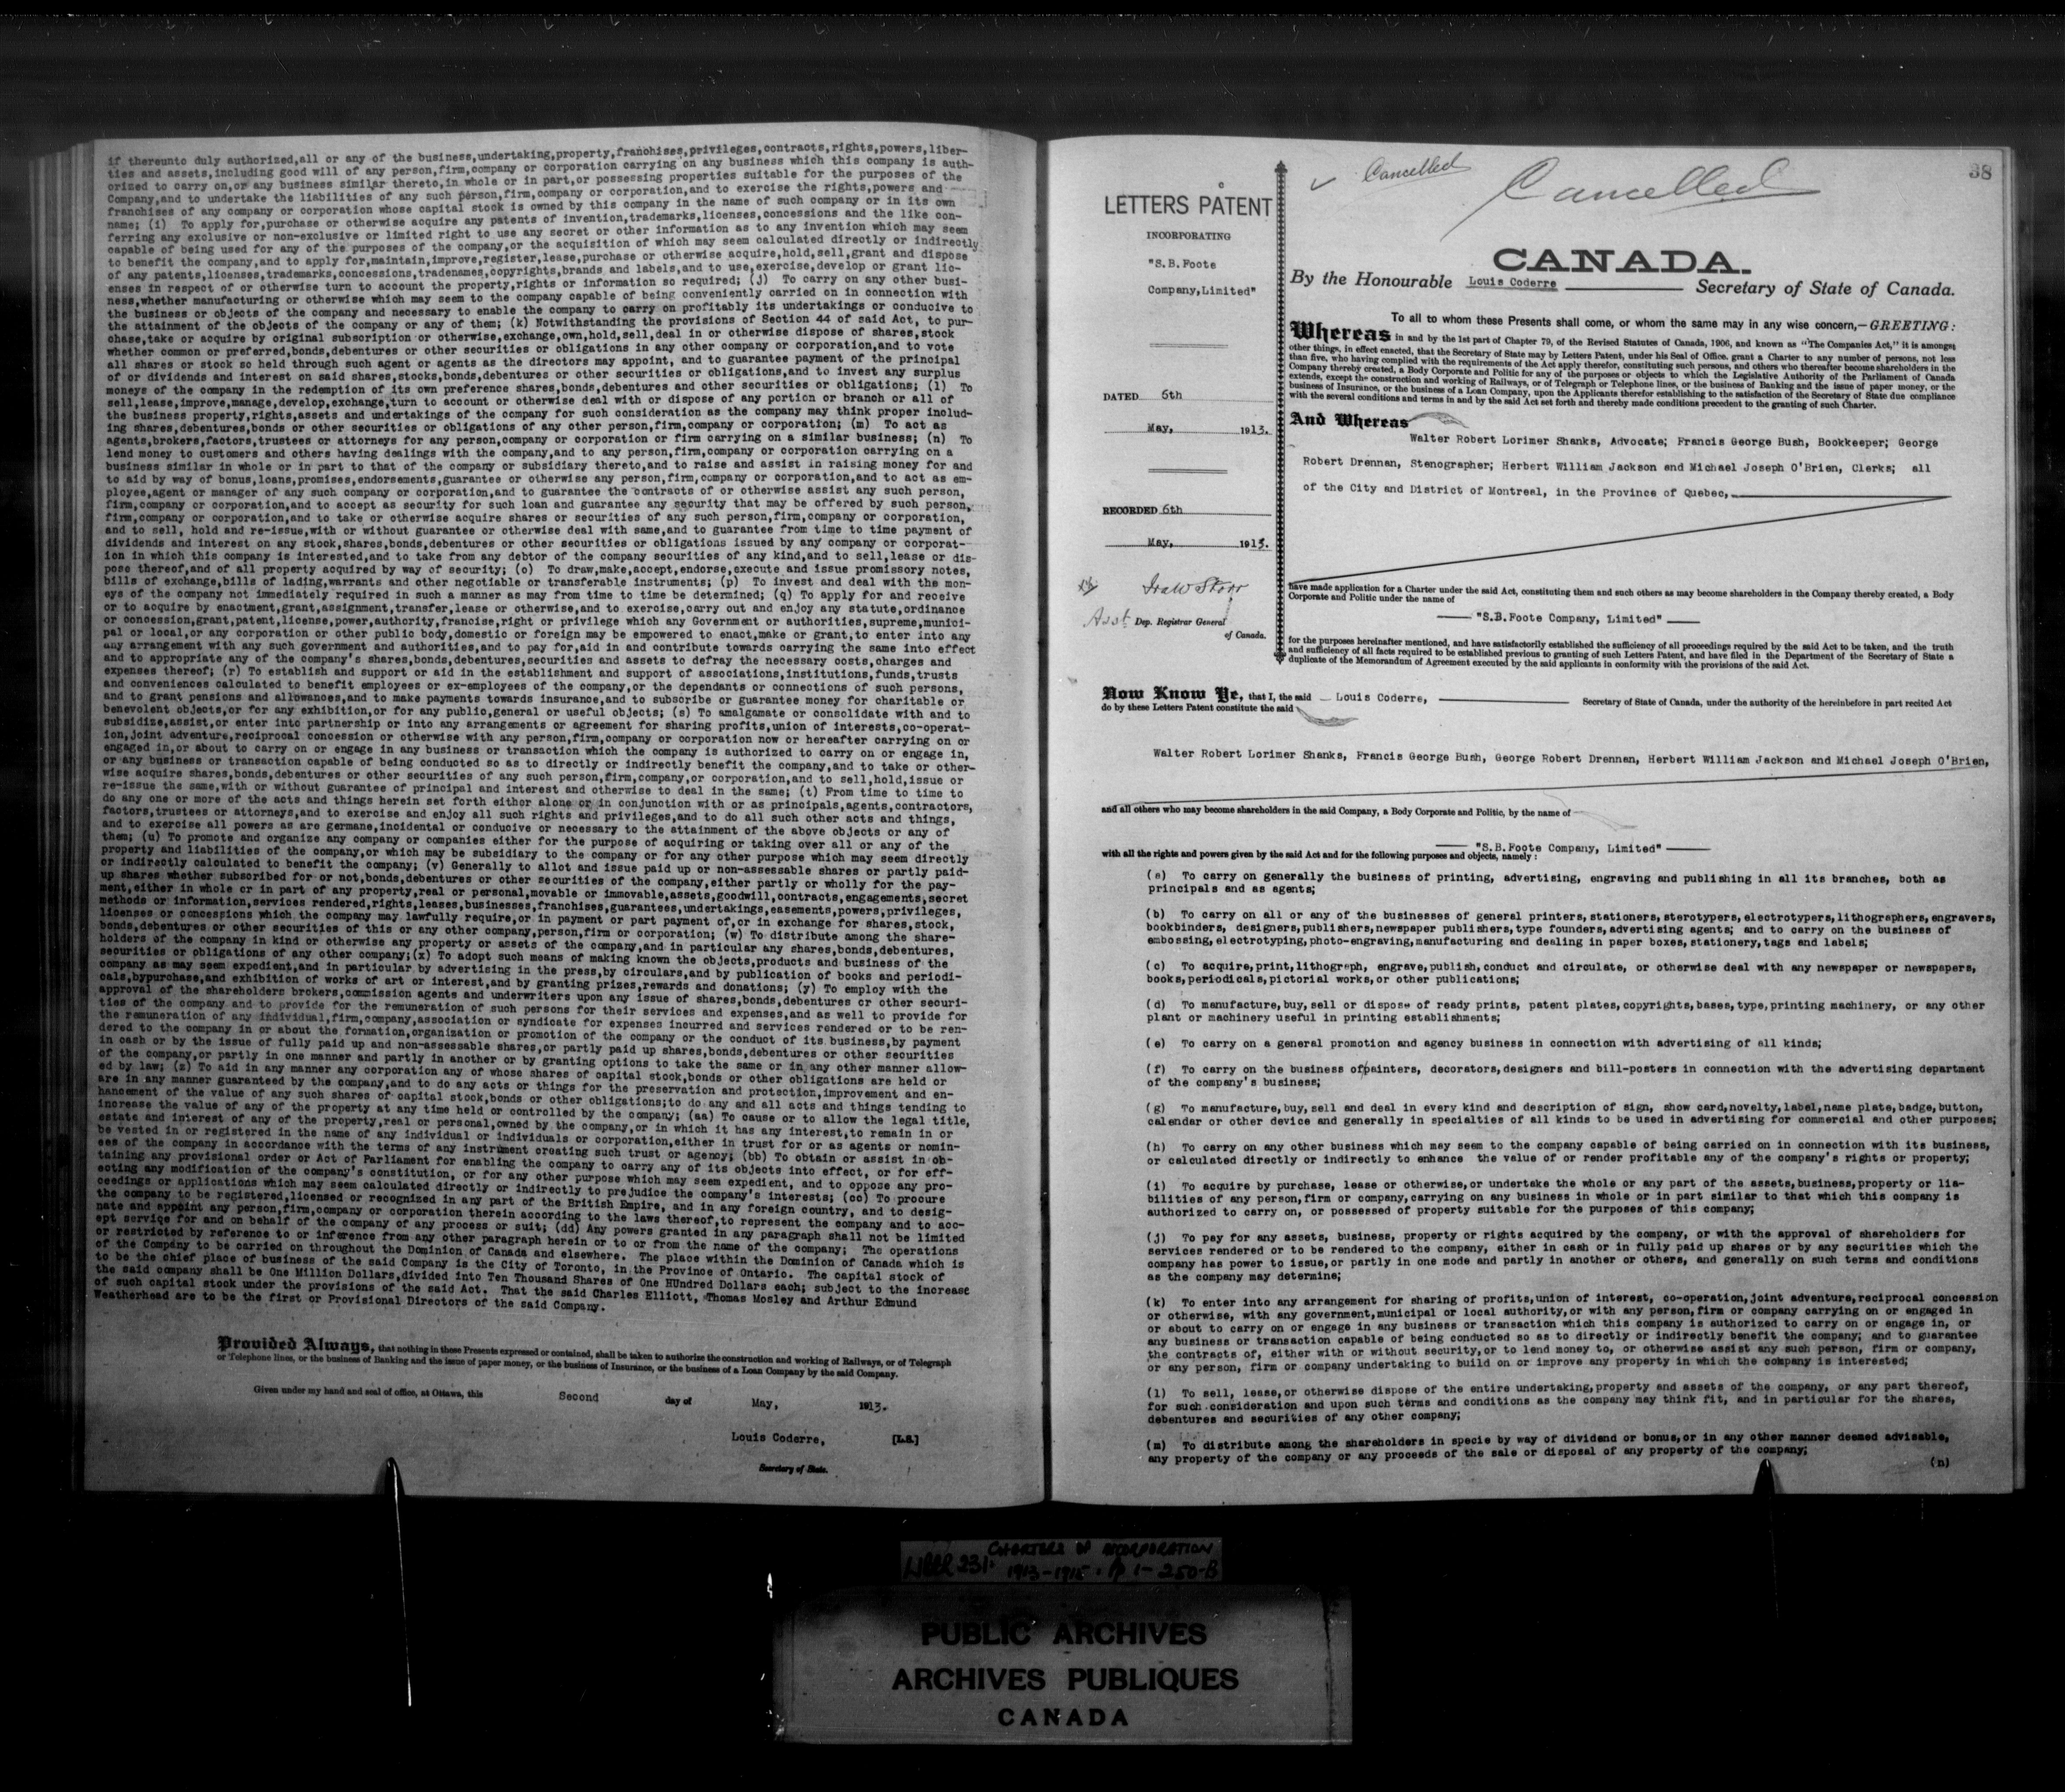 if thereunto duly authorized,all or any of the business,undertaking,property,franchises,privileges,contracts,rights,powers,liber-
ties and assets,including good will of any person,firm,company or corporation carrying on any business which this company is auth-
orized to carry on,or any business similar thereto,in whole or in part,or possessing properties suitable for the purposes of the
Company,and to undertake the liabilities of any such person,firm,company or corporation,and to exercise the rights,powers and
franchises of any company or corporation whose capital stock is owned by this company in the name of such company or in its own
name; (i) To apply for,purchase or otherwise acquire any patents of invention,trademarks,licenses,concessions and the like con-
ferring any exclusive or non-exclusive or limited right to use any secret or other information as to any invention which may seem
capable of being used for any of the purposes of the company,or the acquisition of which may seem calculated directly or indirectly
to benefit the company,and to apply for,maintain,improve,register,lease,purchase or otherwise acquire,hold,sell,grant and dispose
of any patents,licenses,trademarks,concessions,tradenames,copyrights,brands and labels,and to use,exercise,develop or grant lic-
enses in respect of or otherwise turn to account the property,rights or information so required; (j) To carry on any other busi-
ness,whether manufacturing or otherwise which may seem to the company capable of being conveniently carried on in connection with
the business or objects of the company and necessary to enable the company to carry on profitably its undertakings or conducive to
the attainment of the objects of the company or any of them; (k) Notwithstanding the provisions of Section 44 of said Act, to pur-
chase,take or acquire by original subscription or otherwise,exchange,own,hold,sell,deal in or otherwise dispose of shares,stock
whether common or preferred,bonds,debentures or other securities or obligations in any other company or corporation,and to vote
all shares or stock so held through such agent or agents as the directors may appoint, and to guarantee payment of the principal
of or dividends and interest on said shares,stocks,bonds,debentures or other securities or obligations,and to invest any surplus
moneys of the company in the redemption of its own preference shares,bonds,debentures and other securities or obligations; (l) To
sell,lease,improve,manage,develop,exchange,turn to account or otherwise deal with or dispose of any portion or branch or all of
the business property,rights,assets and undertakings of the company for such consideration as the company may think proper includ-
ing shares,debentures,bonds or other securities or obligations of any other person,firm,company or corporation; (m) To act as
agents,brokers,factors,trustees or attorneys for any person,company or corporation or firm carrying on a similar business; (n) To
lend money to customers and others having dealings with the company,and to any person,firm,company or corporation carrying on a
business similar in whole or in part to that of the company or subsidiary thereto,and to raise and assist in raising money for and
to aid by way of bonus,loans,promises,endorsements,guarantee or otherwise any person,firm,company or corporation,and to act as em-
ployee,agent or manager of any such company or corporation,and to guarantee the contracts of or otherwise assist any such person,
firm,company or corporation,and to accept as security for such loan and guarantee any security that may be offered by such person,
firm,company or corporation,and to take or otherwise acquire shares or securities of any such person,firm,company or corporation,
and to sell, hold and re-issue,with or without guarantee or otherwise deal with same,and to guarantee from time to time payment of
dividends and interest on any stock,shares,bonds,debentures or other securities or obligations issued by any company or corporat-
ion in which this company is interested,and to take from any debtor of the company securities of any kind,and to sell,lease or dis-
pose thereof,and of all property acquired by way of security; (o) To draw,make,accept,endorse,execute and issue promissory notes,
bills of exchange,bills of lading,warrants and other negotiable or transferable instruments; (p) To invest and deal with the mon-
eys of the company not immediately required in such a manner as may from time to time be determined; (q) To apply for and receive
or to acquire by enactment,grant,assignment,transfer,lease or otherwise,and to exercise,carry out and enjoy any statute,ordinance
or concession,grant,patent,license,power,authority,francise,right or privilege which any Government or authorities,supreme,munici-
pal or local,or any corporation or other public body,domestic or foreign may be empowered to enact,make or grant,to enter into any
any arrangement with any such government and authorities,and to pay for,aid in and contribute towards carrying the same into effect
and to appropriate any of the company's shares,bonds,debentures,securities and assets to defray the necessary costs,charges and
expenses thereof; (r) To establish and support or aid in the establishment and support of associations,institutions,funds,trusts
and conveniences calculated to benefit employees or ex-employees of the company,or the dependants or connections of such persons,
and to grant pensions and allowances,and to make payments towards insurance,and to subscribe or guarantee money for charitable or
benevolent objects,or for any exhibition,or for any public,general or useful objects; (s) To amalgamate or consolidate with and to
subsidize,assist,or enter into partnership or into any arrangements or agreement for sharing profits,union of interests,co-operat-
ion,joint adventure,reciprocal concession or otherwise with any person,firm,company or corporation now or hereafter carrying on or
engaged in,or about to carry on or engage in any business or transaction which the company is authorized to carry on or engage in,
or any business or transaction capable of being conducted so as to directly or indirectly benefit the company,and to take or other-
wise acquire shares,bonds,debentures or other securities of any such person,firm,company,or corporation,and to sell,hold,issue or
re-issue the same,with or without guarantee of principal and interest and otherwise to deal in the same; (t) From time to time to
do any one or more of the acts and things herein set forth either alone or in conjunction with or as principals,agents,contractors,
factors,trustees or attorneys,and to exercise and enjoy all such rights and privileges,and to do all such other acts and things,
and to exercise all powers as are germane,incidental or conducive or necessary to the attainment of the above objects or any of
them; (u) To promote and organize any company or companies either for the purpose of acquiring or taking over all or any of the
property and liabilities of the company,or which may be subsidiary to the company or for any other purpose which may seem directly
or indirectly calculated to benefit the company; (v) Generally to allot and issue paid up or non-assessable shares or partly paid-
up shares whether subscribed for or not,bonds,debentures or other securities of the company,either partly or wholly for the pay-
ment,either in whole or in part of any property,real or personal,movable or immovable,assets,goodwill,contracts,engagements,secret
methods or information,services rendered,rights,leases,businesses,franchises,guarantees,undertakings,easements,powers,privileges,
licenses or concessions which the company may lawfully require,or in payment or part payment of,or in exchange for shares,stock,
bonds,debentures or other securities of this or any other company,person,firm or corporation; (w) To distribute among the share-
holders of the company in kind or otherwise any property or assets of the company,and in particular any shares,bonds,debentures,
securities or obligations of any other company;(x) To adopt such means of making known the objects,products and business of the
company as may seem expedient,and in particular by advertising in the press,by circulars,and by publication of books and periodi-
cals,bypurchase,and exhibition of works of art or interest,and by granting prizes,rewards and donations; (y) To employ with the
approval of the shareholders brokers,commission agents and underwriters upon any issue of shares,bonds,debentures or other securi-
ties of the company and to provide for the remuneration of such persons for their services and expenses,and as well to provide for
the remuneration of any individual,firm,company,association or syndicate for expenses incurred and services rendered or to be ren-
dered to the company in or about the formation,organization or promotion of the company or the conduct of its business,by payment
in cash or by the issue of fully paid up and non-assessable shares,or partly paid up shares,bonds,debentures or other securities
of the company,or partly in one manner and partly in another or by granting options to take the same or in any other manner allow-
ed by law; (z) To aid in any manner any corporation any of whose shares of capital stock,bonds or other obligations are held or
are in any manner guaranteed by the company,and to do any acts or things for the preservation and protection,improvement and en-
hancement of the value of any such shares of capital stock,bonds or other obligations;to do any and all acts and things tending to
increase the value of any of the property at any time held or controlled by the company; (aa) To cause or to allow the legal title,
estate and interest of any of the property,real or personal,owned by the company,or in which it has any interest,to remain in or
be vested in or registered in the name of any individual or individuals or corporation,either in trust for or as agents or nomin-
ees of the company in accordance with the terms of any instrument creating such trust or agency; (bb) To obtain or assist in ob-
taining any provisional order or Act of Parliament for enabling the company to carry any of its objects into effect, or for eff-
ecting any modification of the company's constitution, or for any other purpose which may seem expedient, and to oppose any pro-
ceedings or applications which may seem calculated directly or indirectly to prejudice the company's interests; (cc) To procure
the company to be registered,licensed or recognized in any part of the British Empire, and in any foreign country, and to desig-
nate and appoint any person,firm,company or corporation therein according to the laws thereof,to represent the company and to acc-
ept service for and on behalf of the company of any process or suit; (dd) Any powers granted in any paragraph shall not be limited
or restricted by reference to or inference from any other paragraph herein or to or from the name of the company; The operations
of the Company to be carried on throughout the Dominion of Canada and elsewhere. The place within the Dominion of Canada which is
to be the chief place of business of the said Company is the City of Toronto, in the Province of Ontario. The capital stock of
the said company shall be One Million Dollars,divided into Ten Thousand Shares of One HUndred Dollars each; subject to the increase
of such capital stock under the provisions of the said Act. That the said Charles Elliott, Thomas Mosley and Arthur Edmund
Weatherhead are to be the first or Provisional Directors of the said Company.
Provided Always, that nothing in these Presents expressed or contained, shall be taken to authorize the construction and working of Railways, or of Telegraph
or Telephone lines, or the business of Banking and the issue of paper money, or the business of Insurance, or the business of a Loan Company by the said Company.
Given under my hand and seal of office, at Ottawa, this Second day of May, 1913.
Louis Coderre, [L.S.]
Secretary of State.
38
Cancelled
Cancelled
LETTERS PATENT
INCORPORATING
"S.B.Foote
Company,Limited"
DATED 5th
May, 1913.
RECORDED 6th
May, 1913.
Asst Dep. Registrar General
of Canada.
CANADA.
By the Honourable Louis Coderre Secretary of State of Canada.
To all to whom these Presents shall come, or whom the same may in any wise concern,—GREETING:
Whereas in and by the 1st part of Chapter 79, of the Revised Statutes of Canada, 1906, and known as "The Companies Act," it is amongst
other things, in effect enacted, that the Secretary of State may by Letters Patent, under his Seal of Office, grant a Charter to any number of persons, not less
than five, who having complied with the requirements of the Act apply therefor, constituting such persons, and others who thereafter become shareholders in the
Company thereby created, a Body Corporate and Politic for any of the purposes or objects to which the Legislative Authority of the Parliament of Canada
extends, except the construction and working of Railways, or of Telegraph or Telephone lines, or the business of Banking and the issue of paper money, or the
business of Insurance, or the business of a Loan Company, upon the Applicants therefor establishing to the satisfaction of the Secretary of State due compliance
with the several conditions and terms in and by the said Act set forth and thereby made conditions precedent to the granting of such Charter.
And Whereas
Walter Robert Lorimer Shanks, Advocate; Francis George Bush, Bookkeeper; George
Robert Drennan, Stenographer; Herbert William Jackson and Michael Joseph O'Brien, Clerks; all
of the City and District of Montreal, in the Province of Quebec,
have made application for a Charter under the said Act, constituting them and such others as may become shareholders in the Company thereby created, a Body
Corporate and Politic under the name of
"S.B.Foote Company, Limited"
for the purposes hereinafter mentioned, and have satisfactorily established the sufficiency of all proceedings required by the said Act to be taken, and the truth
and sufficiency of all facts required to be established previous to granting of such Letters Patent, and have filed in the Department of the Secretary of State a
duplicate of the Memorandum of Agreement executed by the said applicants in conformity with the provisions of the said Act.
Now Know Ye, that I, the said Louis Coderre, Secretary of State of Canada, under the authority of the hereinbefore in part recited Act
do by these Letters Patent constitute the said
Walter Robert Lorimer Shanks, Francis George Bush, George Robert Drennan, Herbert William Jackson and Michael Joseph O'Brien,
and all others who may become shareholders in the said Company, a Body Corporate and Politic, by the name of
"S.B.Foote Company, Limited"
with all the rights and powers given by the said Act and for the following purposes and objects, namely:
(a) To carry on generally the business of printing, advertising, engraving and publishing in all its branches, both as
principals and as agents;
(b) To carry on all or any of the businesses of general printers,stationers,sterotypers,electrotypers,lithographers,engravers,
bookbinders, designers,publishers,newspaper publishers,type founders,advertising agents; and to carry on the business of
embossing,electrotyping,photo-engraving,manufacturing and dealing in paper boxes,stationery,tags and labels;
(c) To acquire,print,lithograph, engrave,publish,conduct and circulate, or otherwise deal with any newspaper or newspapers,
books,periodicals,pictorial works,or other publications;
(d) To manufacture,buy,sell or dispose of ready prints, patent plates,copyrights,bases,type,printing machinery, or any other
plant or machinery useful in printing establishments;
(e) To carry on a general promotion and agency business in connection with advertising of all kinds;
(f) To carry on the business ofpainters, decorators,designers and bill-posters in connection with the advertising department
of the company's business;
(g) To manufacture,buy,sell and deal in every kind and description of sign, show card,novelty,label,name plate,badge,button,
calendar or other device and generally in specialties of all kinds to be used in advertising for commercial and other purposes;
(h) To carry on any other business which may seem to the company capable of being carried on in connection with its business,
or calculated directly or indirectly to enhance the value of or render profitable any of the company's rights or property;
(i) To acquire by purchase, lease or otherwise,or undertake the whole or any part of the assets,business,property or lia-
bilities of any person,firm or company,carrying on any business in whole or in part similar to that which this company is
authorized to carry on, or possessed of property suitable for the purposes of this company;
(j) To pay for any assets, business, property or rights acquired by the company, or with the approval of shareholders for
services rendered or to be rendered to the company, either in cash or in fully paid up shares or by any securities which the
company has power to issue,or partly in one mode and partly in another or others, and generally on such terms and conditions
as the company may determine;
(k) To enter into any arrangement for sharing of profits,union of interest, co-operation,joint adventure,reciprocal concession
or otherwise, with any government,municipal or local authority,or with any person,firm or company carrying on or engaged in
or about to carry on or engage in any business or transaction which this company is authorized to carry on or engage in, or
any business or transaction capable of being conducted so as to directly or indirectly benefit the company; and to guarantee
the contracts of, either with or without security,or to lend money to, or otherwise assist any such person, firm or company,
or any person, firm or company undertaking to build on or improve any property in which the company is interested;
(l) To sell, lease,or otherwise dispose of the entire undertaking,property and assets of the company, or any part thereof,
for such consideration and upon such terms and conditions as the company may think fit, and in particular for the shares,
debentures and securities of any other company;
(m) To distribute among the shareholders in specie by way of dividend or bonus,or in any other manner deemed advisable,
any property of the company or any proceeds of the sale or disposal of any property of the company;
(n)
CHARTERS OF INCORPORATION
LIBER 231. 1913-1915. 1-250-B
PUBLIC ARCHIVES
ARCHIVES PUBLIQUES
CANADA